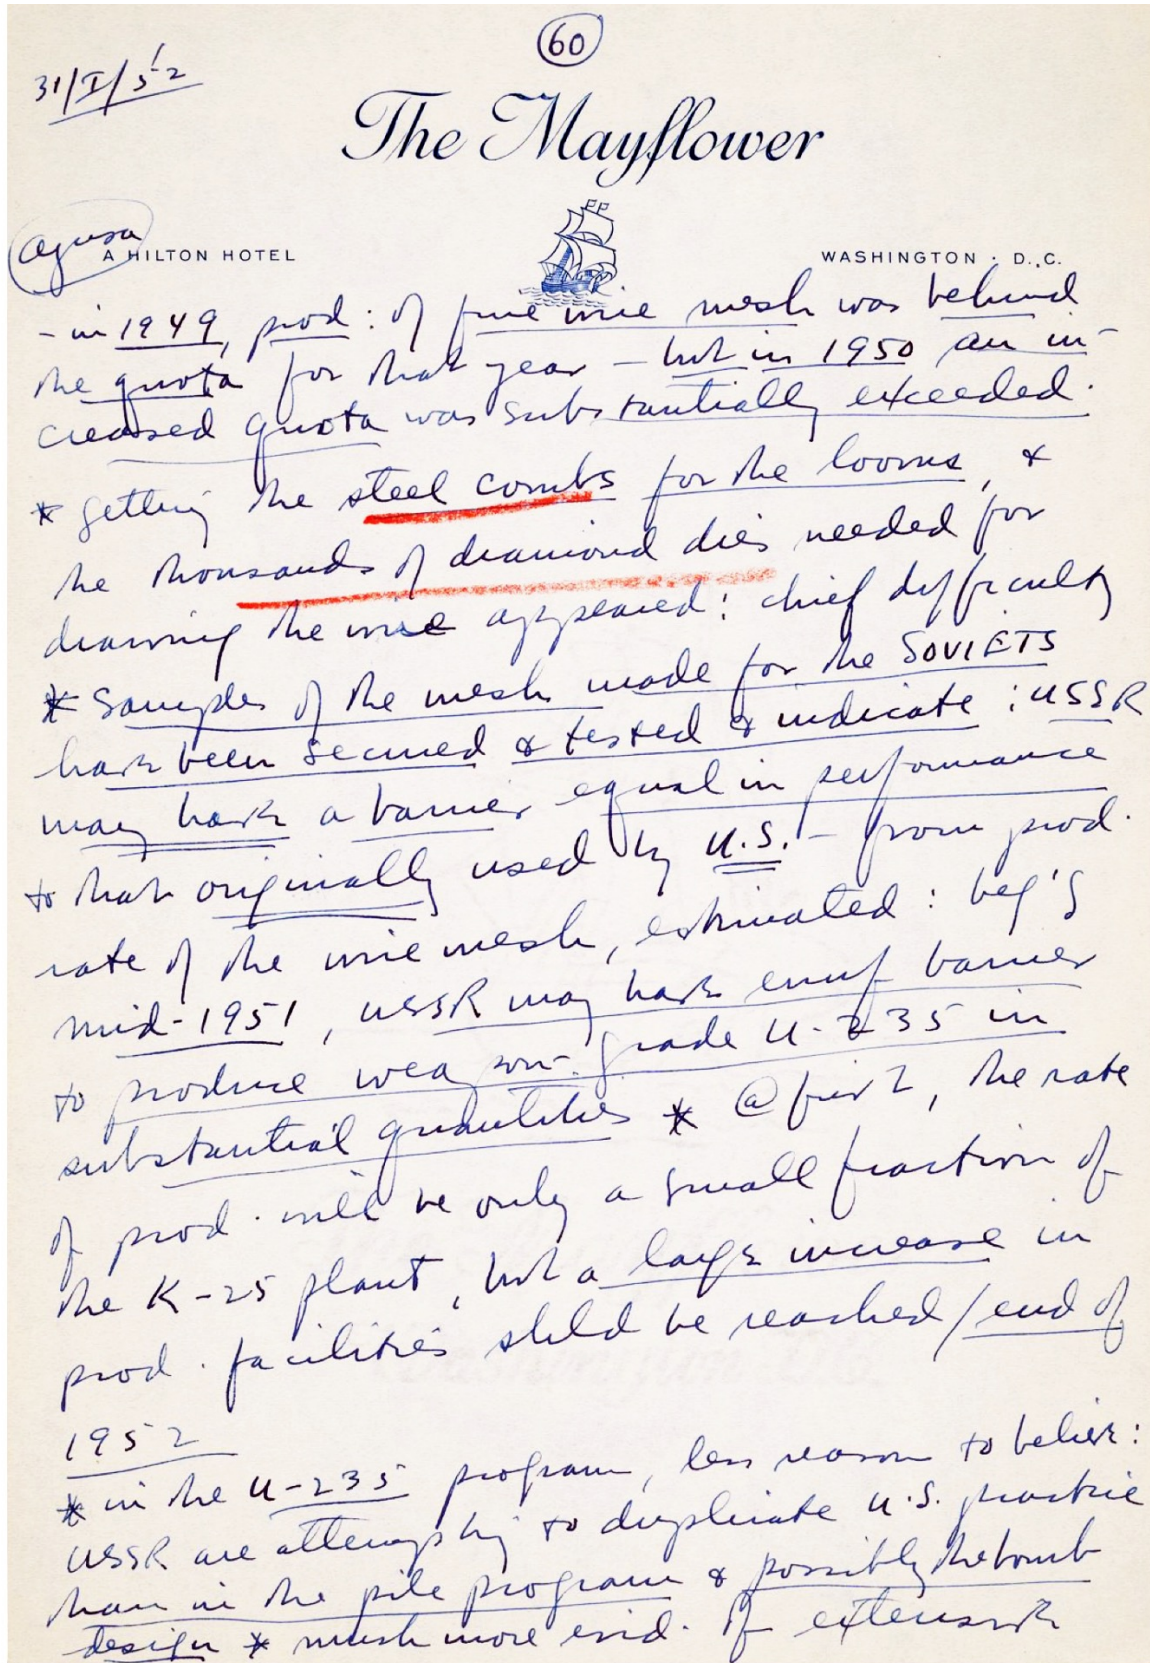 60
31/I/52
The Mayflower
A HILTON HOTEL
WASHINGTON · D. C.
- in 1949, prod: of fine wire mesh was behind
the quota for that year - but in 1950 an in-
creased quota was substantially exceeded.
* getting the steel combs for the looms, &
the thousands of diamond dies needed for
drawing the wire appeared: chief difficulty
* Samples of the mesh made for the SOVIETS
have been secured & tested & indicate: USSR
may have a barrier equal in performance
to that originally used by U.S. - from prod.
rate of the wire mesh, estimated: beg'g
mid-1951, USSR may have enuf barrier
to produce weapon-grade U-235 in
substantial quantities * @ first, the rate
of prod. will be only a small fraction of
the K-25 plant, but a large increase in
prod. facilities shld be reached / end of
1952
* in the U-235 program, less reason to believe:
USSR are attempting to duplicate U.S. practice
than in the pile program & possibly the bomb
design * much more evid. of extensive